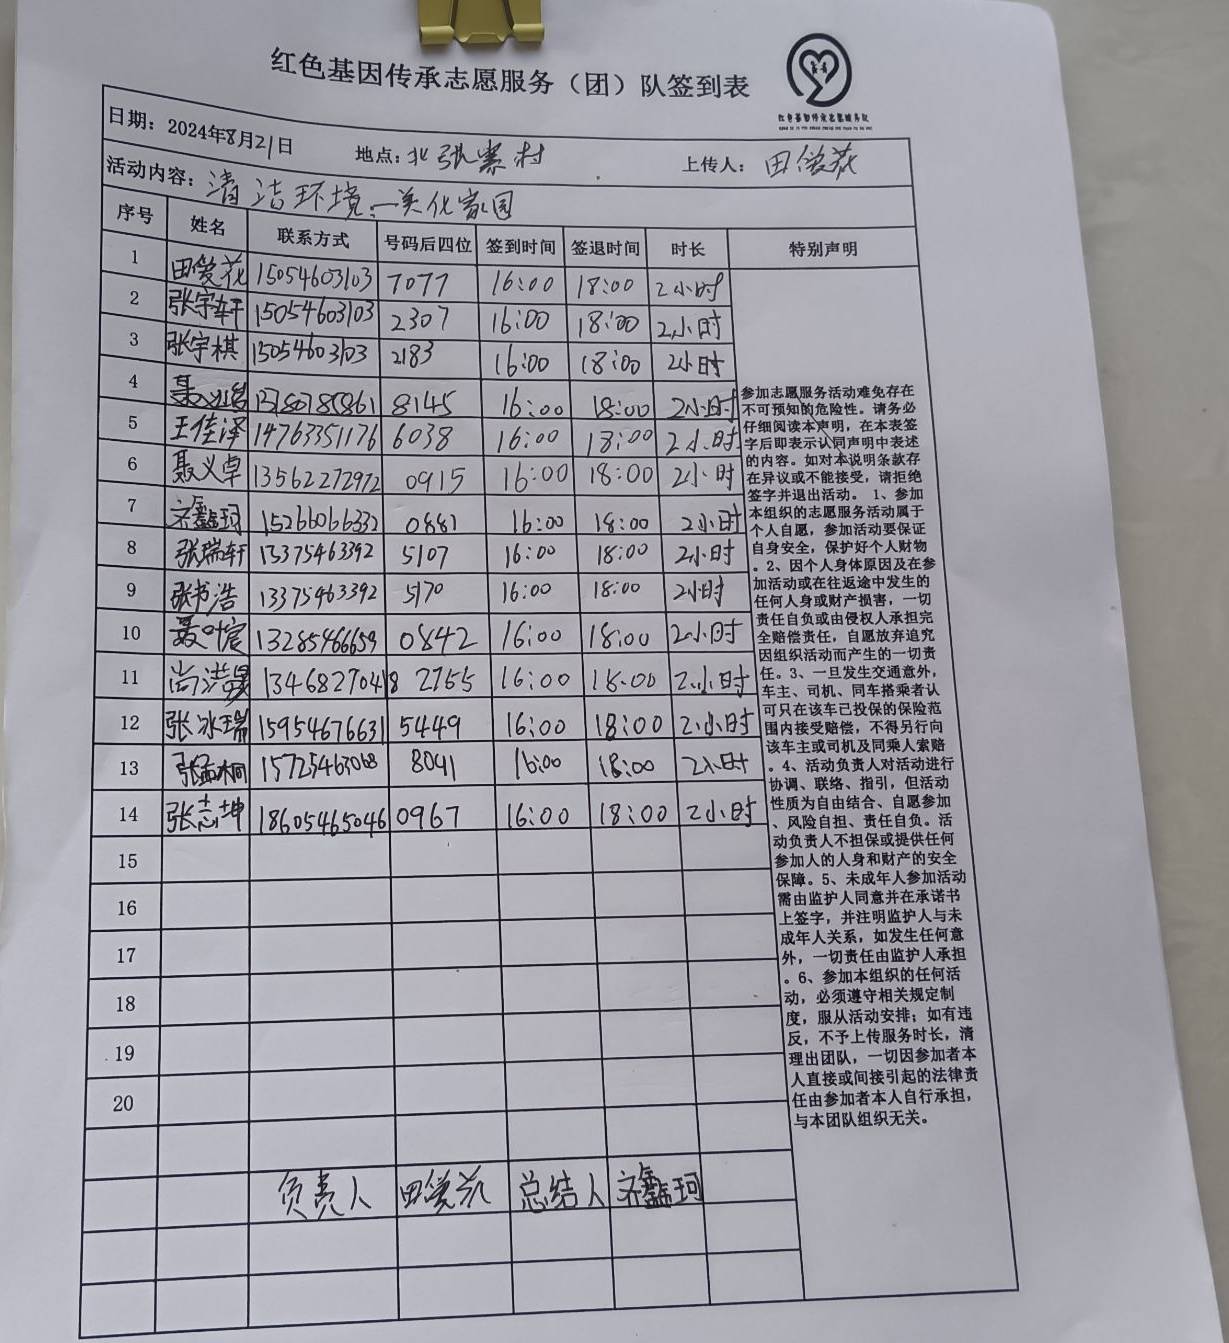 红色基因传承志愿服务（团）队签到表
红色基因传承志愿服务队
日期：2024年8月21日 地点：北张寨村 上传人：田爱花
活动内容：清洁环境，美化家园
序号 姓名 联系方式 号码后四位 签到时间 签退时间 时长 特别声明
1 田爱花 15054603103 7077 16:00 18:00 2小时
2 张宇轩 15054603103 2307 16:00 18:00 2小时
3 张宇棋 15054603103 2183 16:00 18:00 2小时
4 8145 16:00 18:00 2小时
5 王佳泽 14763351176 6038 16:00 18:00 2小时
6 聂义卓 13562272972 0915 16:00 18:00 2小时
7 齐鑫珂 15266066332 0881 16:00 18:00 2小时
8 张瑞轩 13375463392 5107 16:00 18:00 2小时
9 张书浩 13375463392 5170 16:00 18:00 2小时
10 聂叶宸 13285466659 0842 16:00 18:00 2小时
11 尚浩晟 13468270418 2755 16:00 18:00 2小时
12 张冰瑞 15954676631 5449 16:00 18:00 2小时
13 张孟桐 15725463068 8041 16:00 18:00 2小时
14 张志坤 18605465046 0967 16:00 18:00 2小时
15
16
17
18
19
20
参加志愿服务活动难免存在
不可预知的危险性。请务必
仔细阅读本声明，在本表签
字后即表示认同声明中表述
的内容。如对本说明条款存
在异议或不能接受，请拒绝
签字并退出活动。1、参加
本组织的志愿服务活动属于
个人自愿，参加活动要保证
自身安全，保护好个人财物
。2、因个人身体原因及在参
加活动或在往返途中发生的
任何人身或财产损害，一切
责任自负或由侵权人承担完
全赔偿责任，自愿放弃追究
因组织活动而产生的一切责
任。3、一旦发生交通意外，
车主、司机、同车搭乘者认
可只在该车已投保的保险范
围内接受赔偿，不得另行向
该车主或司机及同乘人索赔
。4、活动负责人对活动进行
协调、联络、指引，但活动
性质为自由结合、自愿参加
、风险自担、责任自负。活
动负责人不担保或提供任何
参加人的人身和财产的安全
保障。5、未成年人参加活动
需由监护人同意并在承诺书
上签字，并注明监护人与未
成年人关系，如发生任何意
外，一切责任由监护人承担
。6、参加本组织的任何活
动，必须遵守相关规定制
度，服从活动安排；如有违
反，不予上传服务时长，清
理出团队，一切因参加者本
人直接或间接引起的法律责
任由参加者本人自行承担，
与本团队组织无关。
负责人 田爱花 总结人 齐鑫珂